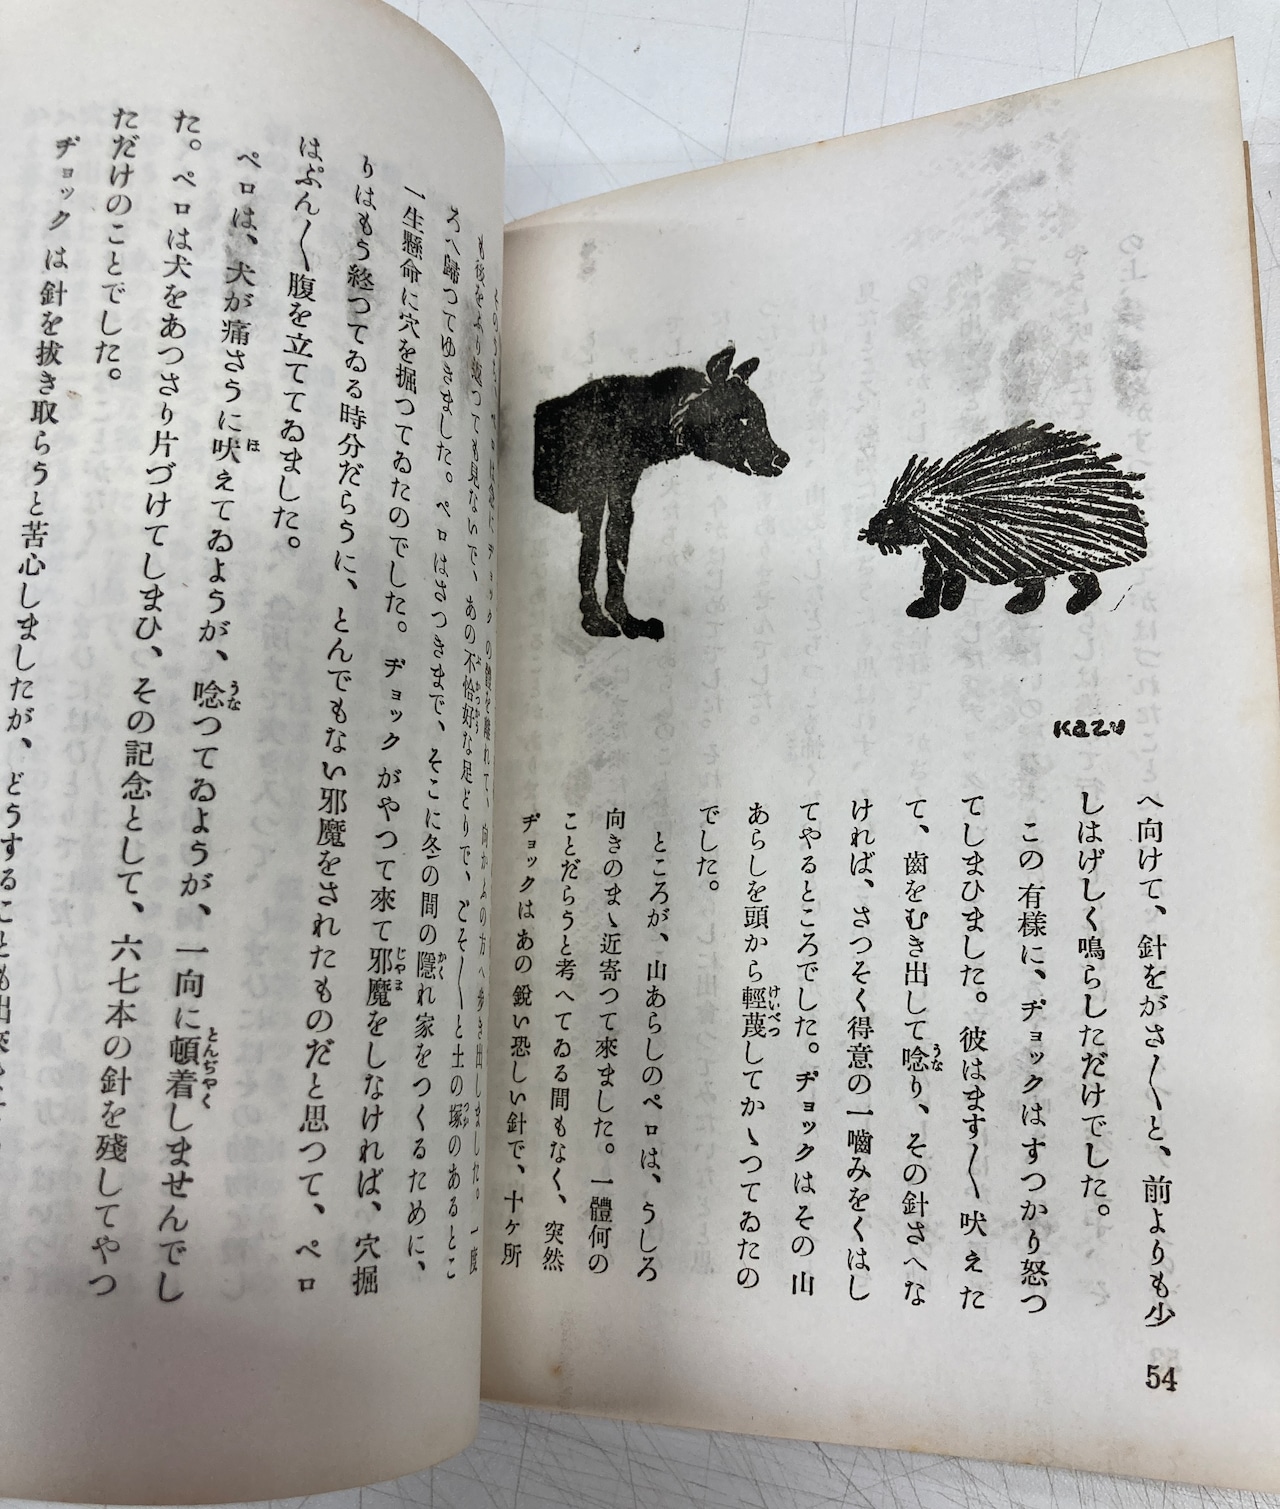 KAZU
へ向けて、針をがさ〳〵と、前よりも少
しはげしく鳴らしただけでした。
この有樣に、ヂョックはすつかり怒つ
てしまひました。彼はます〳〵吠えた
て、齒をむき出して唸り、その針さへな
ければ、さつそく得意の一嚙みをくはし
てやるところでした。ヂョックはその山
あらしを頭から輕蔑してかゝつてゐたの
でした。
ところが、山あらしのペロは、うしろ
向きのまゝ近寄つて來ました。一體何の
ことだらうと考へてゐる間もなく、突然
ヂョックはあの銳い恐しい針で、十ヶ所
54
そのうち、ペロは急にヂョックの體を離れて、向かふの方へ步き出しました。一度
も後をふり返つても見ないで、あの不恰好な足どりで、ごそ〳〵と土の塚のあるとこ
ろへ歸つてゆきました。ペロはさつきまで、そこに冬の間の隱れ家をつくるために、
一生懸命に穴を掘つてゐたのでした。ヂョックがやつて來て邪魔をしなければ、穴掘
りはもう終つてゐる時分だらうに、とんでもない邪魔をされたものだと思つて、ペロ
はぷん〳〵腹を立ててゐました。
ペロは、犬が痛さうに吠えてゐようが、唸つてゐようが、一向に頓着しませんでし
た。ペロは犬をあつさり片づけてしまひ、その記念として、六七本の針を殘してやつ
ただけのことでした。
ヂョックは針を拔き取らうと苦心しましたが、どうすることも出來ま